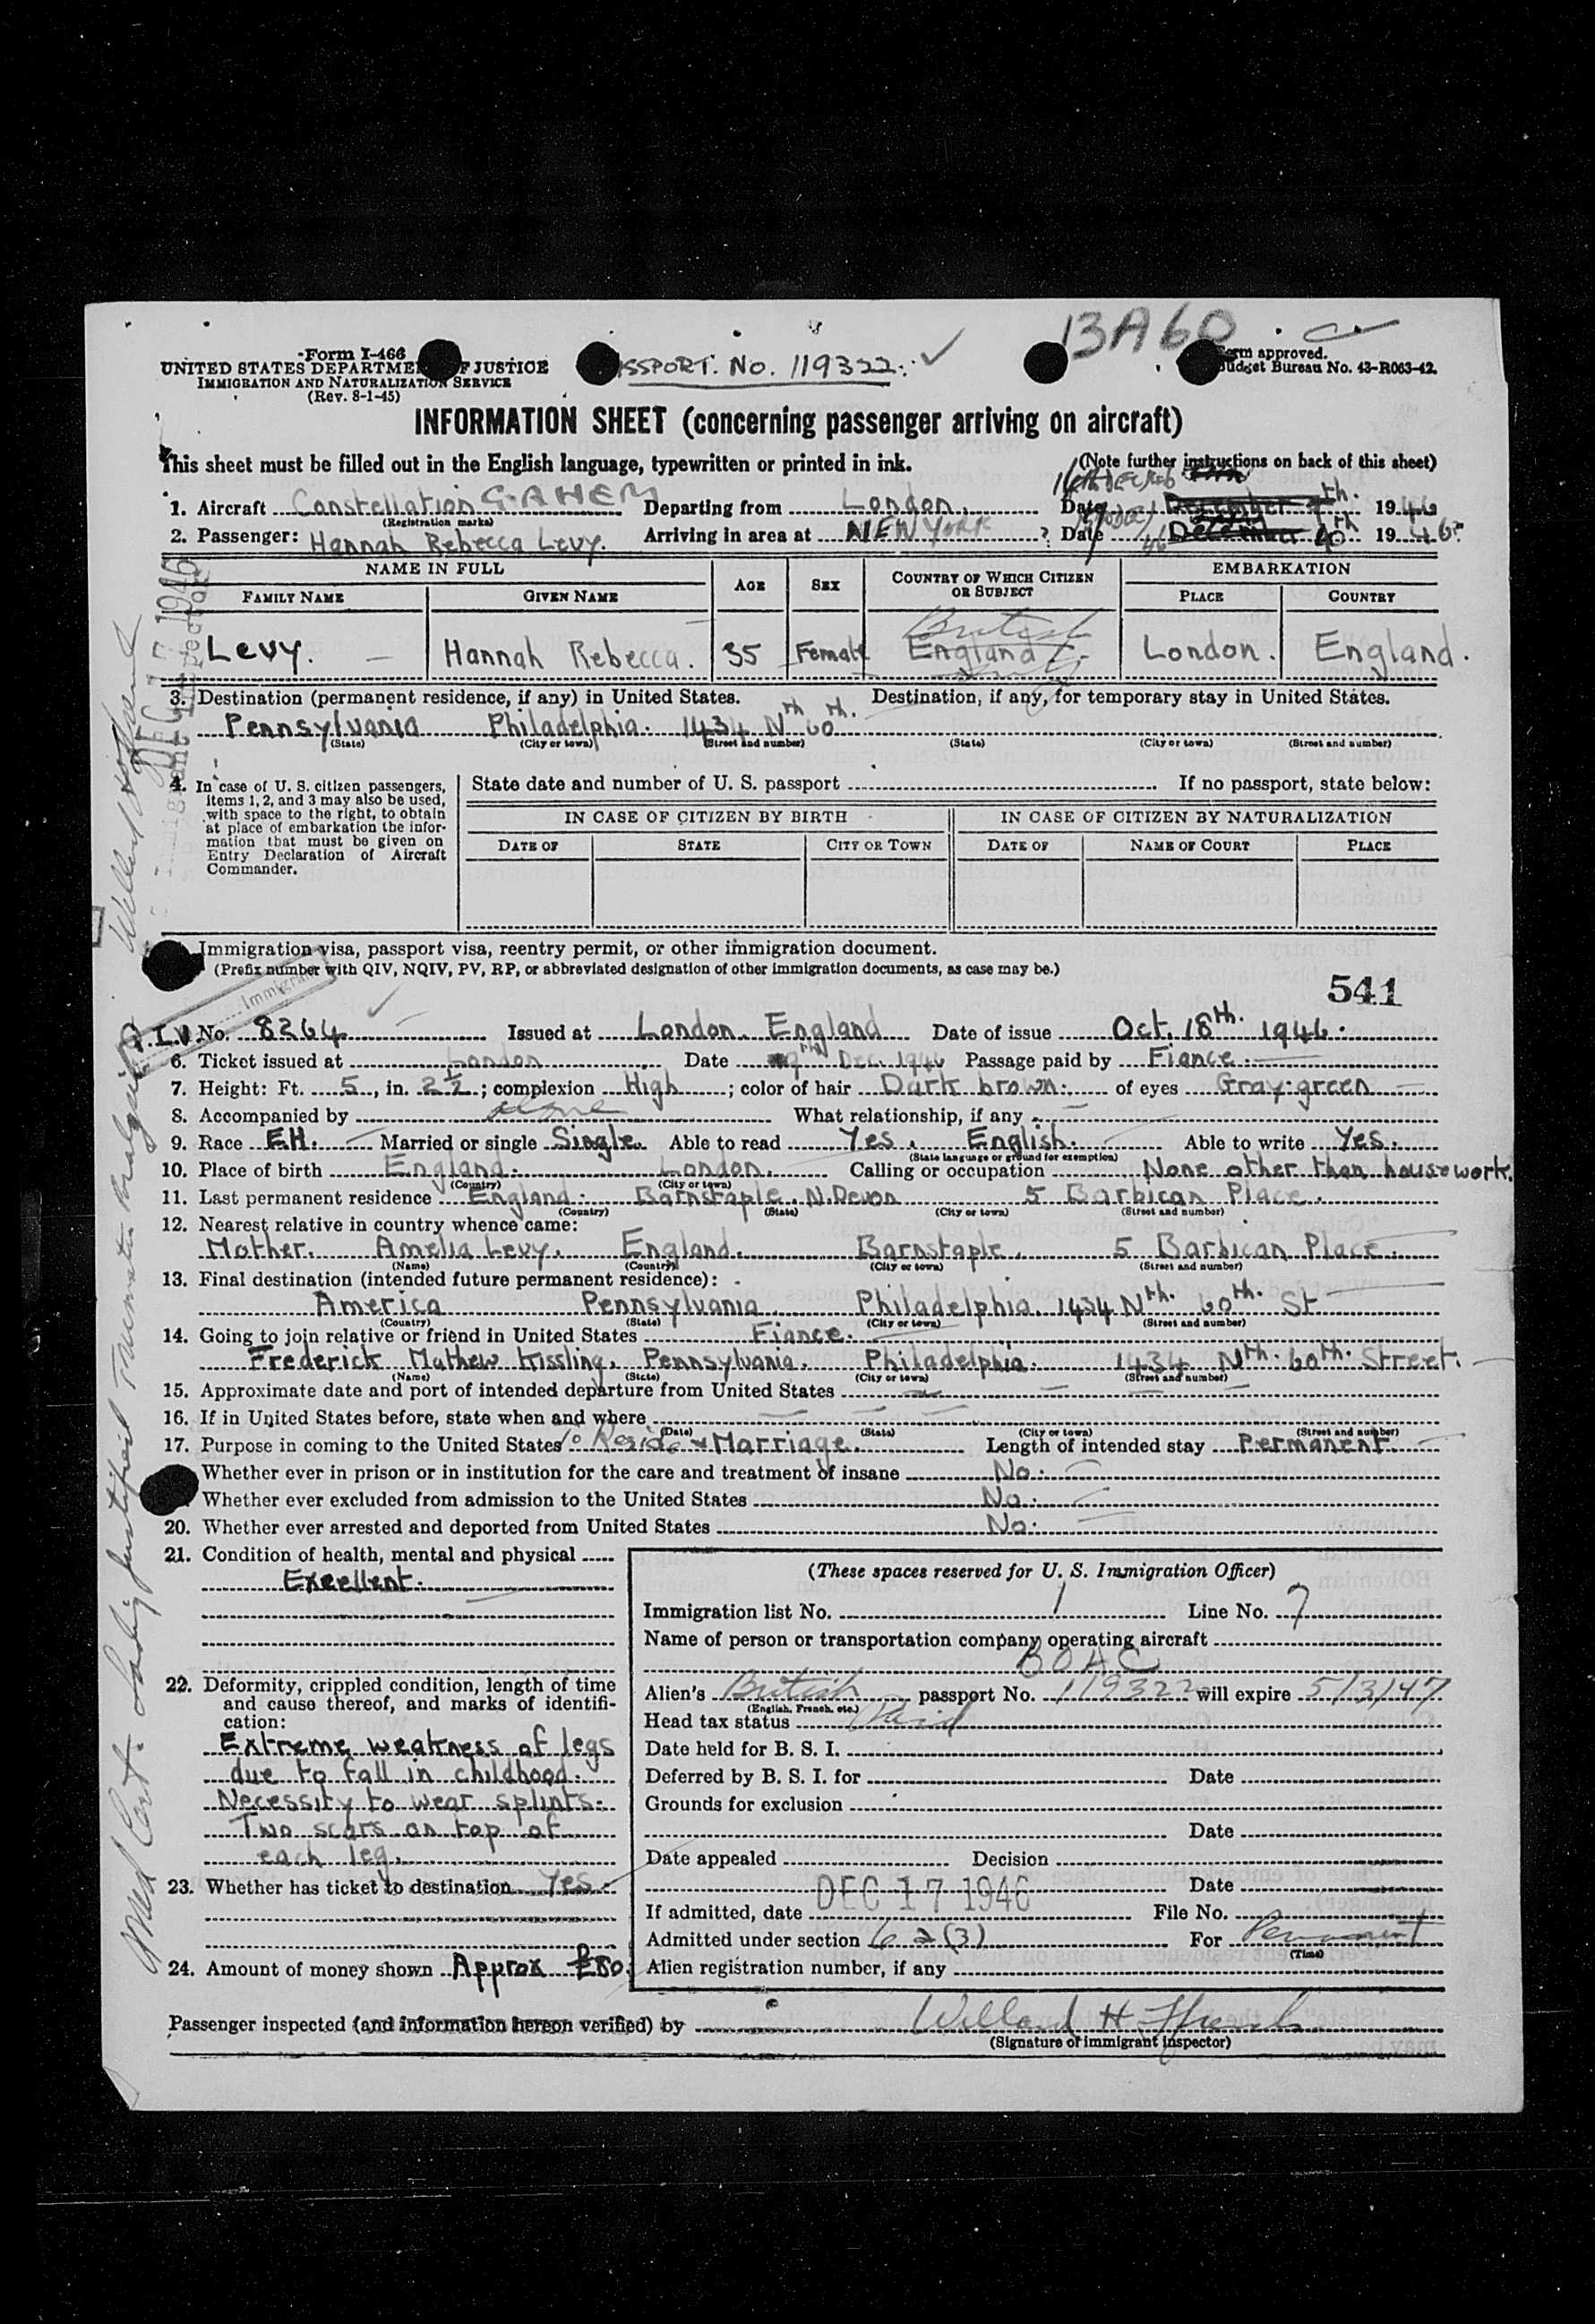 13A60
Form I-466
UNITED STATES DEPARTME F JUSTICE
IMMIGRATION AND NATURALIZATION SERVICE
(Rev. 8-1-45)
SSPORT. No. 119322.
Form approved.
Budget Bureau No. 43-R063-42.
INFORMATION SHEET (concerning passenger arriving on aircraft)
This sheet must be filled out in the English language, typewritten or printed in ink.
(Note further instructions on back of this sheet)
1. Aircraft Constellation G-AHEM Departing from London, Date December 9th. 1946
(Registration marks)
2. Passenger: Hannah Rebecca Levy. Arriving in area at NEW YORK Date December 10th 1946
NAME IN FULL AGE SEX COUNTRY OF WHICH CITIZEN OR SUBJECT EMBARKATION
FAMILY NAME GIVEN NAME PLACE COUNTRY
British
Levy. Hannah Rebecca. 35 Female England London. England.
3. Destination (permanent residence, if any) in United States. Destination, if any, for temporary stay in United States.
Pennsylvania Philadelphia. 1434 Nth 60th.
(State) (City or town) (Street and number) (State) (City or town) (Street and number)
4. In case of U. S. citizen passengers, items 1, 2, and 3 may also be used, with space to the right, to obtain at place of embarkation the information that must be given on Entry Declaration of Aircraft Commander.
State date and number of U. S. passport If no passport, state below:
IN CASE OF CITIZEN BY BIRTH IN CASE OF CITIZEN BY NATURALIZATION
DATE OF STATE CITY OR TOWN DATE OF NAME OF COURT PLACE
Immigration visa, passport visa, reentry permit, or other immigration document.
(Prefix number with QIV, NQIV, PV, RP, or abbreviated designation of other immigration documents, as case may be.)
541
I.V. No. 8264 Issued at London. England Date of issue Oct. 18th. 1946.
6. Ticket issued at London Date 9th Dec. 1946 Passage paid by Fiance.
7. Height: Ft. 5, in. 2½; complexion High; color of hair Dark brown. of eyes Gray-green
8. Accompanied by alone What relationship, if any
9. Race EH. Married or single Single. Able to read Yes. English. Able to write Yes.
(State language or ground for exemption)
10. Place of birth England. London. Calling or occupation None other than housework.
(Country) (City or town)
11. Last permanent residence England. Barnstaple. N. Devon 5 Barbican Place.
(Country) (State) (City or town) (Street and number)
12. Nearest relative in country whence came:
Mother. Amelia Levy. England. Barnstaple. 5 Barbican Place.
(Name) (Country) (City or town) (Street and number)
13. Final destination (intended future permanent residence):
America Pennsylvania Philadelphia. 1434 Nth. 60th. St
(Country) (State) (City or town) (Street and number)
14. Going to join relative or friend in United States Fiance.
Frederick Mathew Kissling. Pennsylvania. Philadelphia. 1434 Nth. 60th. Street.
(Name) (State) (City or town) (Street and number)
15. Approximate date and port of intended departure from United States
16. If in United States before, state when and where
(Date) (State) (City or town) (Street and number)
17. Purpose in coming to the United States To Reside & Marriage. Length of intended stay Permanent.
Whether ever in prison or in institution for the care and treatment of insane No.
Whether ever excluded from admission to the United States No.
20. Whether ever arrested and deported from United States No.
21. Condition of health, mental and physical
Excellent.
22. Deformity, crippled condition, length of time and cause thereof, and marks of identification:
Extreme weakness of legs
due to fall in childhood.
Necessity to wear splints.
Two scars on top of
each leg.
23. Whether has ticket to destination Yes.
24. Amount of money shown Approx £80.
(These spaces reserved for U. S. Immigration Officer)
Immigration list No. 1 Line No. 7
Name of person or transportation company operating aircraft
BOAC
Alien's British passport No. 119322 will expire 5/3/47
(English, French, etc.)
Head tax status Paid
Date held for B. S. I.
Deferred by B. S. I. for Date
Grounds for exclusion
Date
Date appealed Decision
Date
If admitted, date DEC 17 1946 File No.
Admitted under section 6 2(3) For Permanent
(Time)
Alien registration number, if any
Passenger inspected (and information hereon verified) by Willard H
(Signature of immigrant inspector)